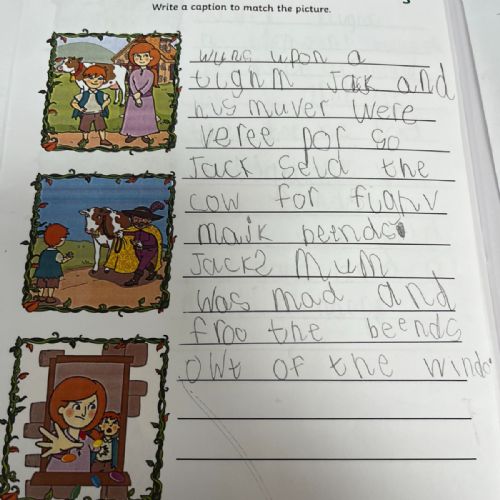 Write a caption to match the picture.
wuns upon a
tighm Jack and
his muver were
veree por so
Jack seld the
cow for fighv
majk beends
Jacks Mum
was mad and
froo the beends
owt of the window